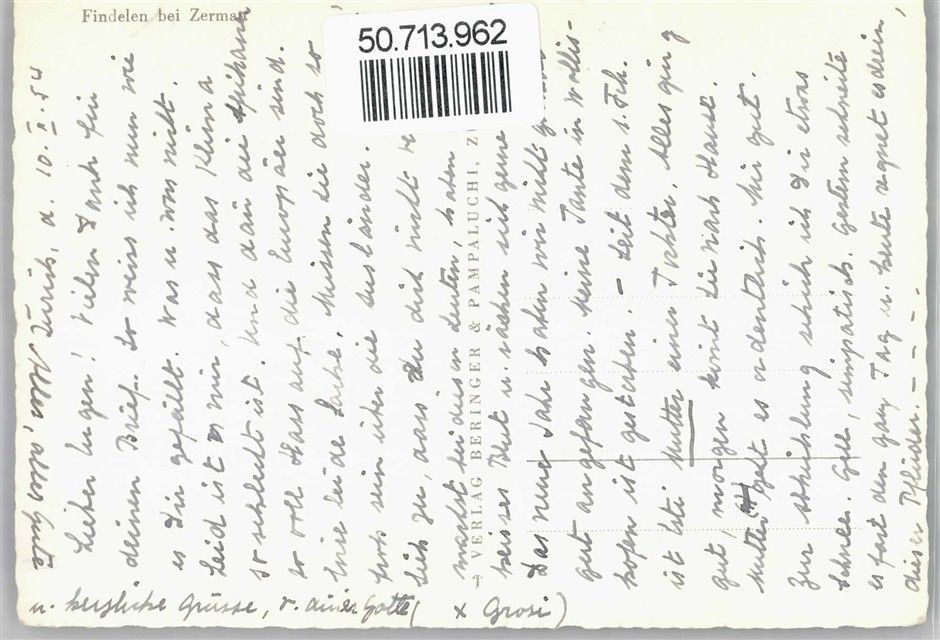 Findelen bei Zermatt
50.713.962
VERLAG BERINGER & PAMPALUCHI, Z
Zürich, d. 10. I. 54
Lieber Eugen! Vielen Dank für
deinen Brief. So weiss ich nun wie
es Dir gefällt. Was u. was nicht.
Leid ist es mir, dass das Klima
so schlecht ist. Und dann die
so voll Hass auf die Europäer sind.
eine Sache. Müssen die doch so
froh sein über die Ausländer.
Sieh zu, dass Du dich nicht
machst bei diesen Leuten, haben
heisses Blut u. rächen sich gerne
Das neue Jahr hat mir nicht
gut angefangen. Meine Tante in Wollis-
hofen ist gestorben. – Seit dem 5. Feb.
ist Esti Mutter einer Tochter. Alles ging
gut, morgen kommt sie nach Hause.
Mutter geht es ordentlich. Mir gut.
Zur abkühlung schick ich Dir etwas
Schnee. Gell, simpatisch. Gestern schneite
es fast den ganz Tag u. heute regnet es drein
dieser Pflüder. –
Alles, alles Gute
u. herzliche Grüsse, v. deiner Gotte ( x Grosi )